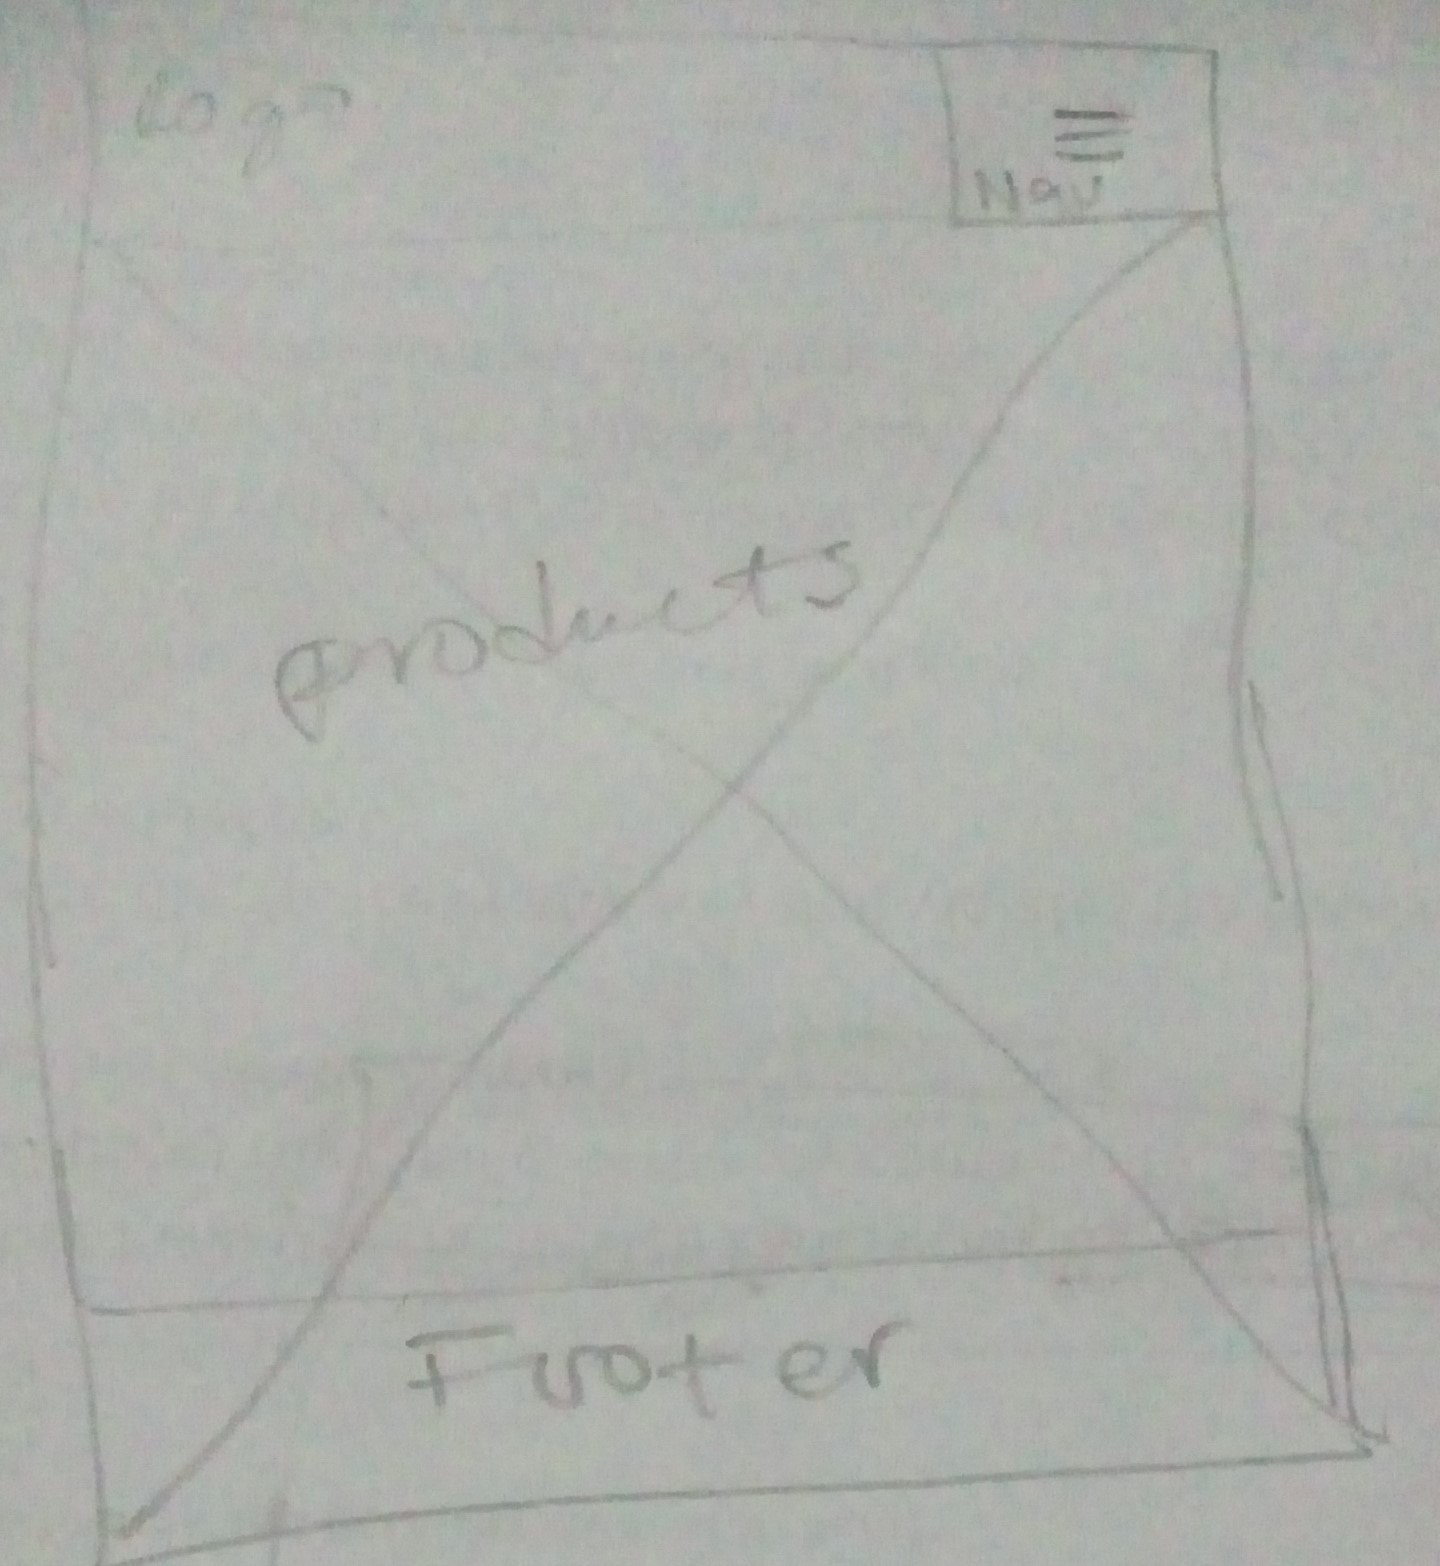 Logo
Nav
products
Footer